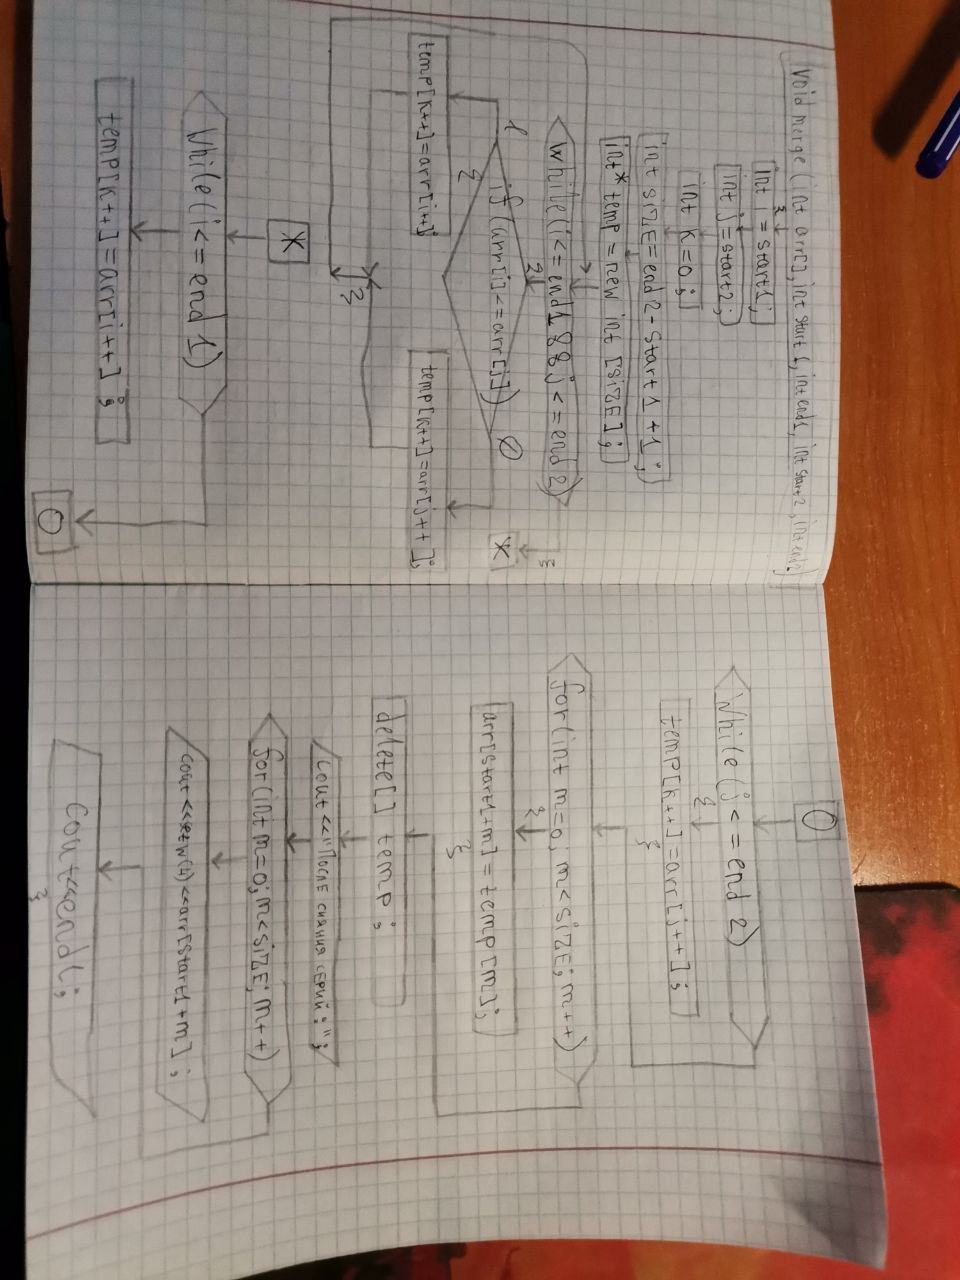 void merge (int arr[], int start1, int end1, int start2, int end2)
{
int i = start1;
int j = start2;
int k = 0;
int size = end2 - start1 + 1;
int* temp = new int [size];
while (i <= end1 && j <= end2)
{
}
*
if (arr[i] <= arr[j])
1
0
{
temp[k++] = arr[i++]
temp[k++] = arr[j++];
}
*
while (i <= end 1)
temp[k++] = arr[i++];
0
0
while (j <= end 2)
{
temp[k++] = arr[j++];
}
for (int m=0; m<size; m++)
{
arr[start1+m] = temp[m];
}
delete[] temp;
cout << "После слияния серий:";
for (int m=0; m<size; m++)
cout <<setw(4)<<arr[start1+m];
cout<<endl;
}